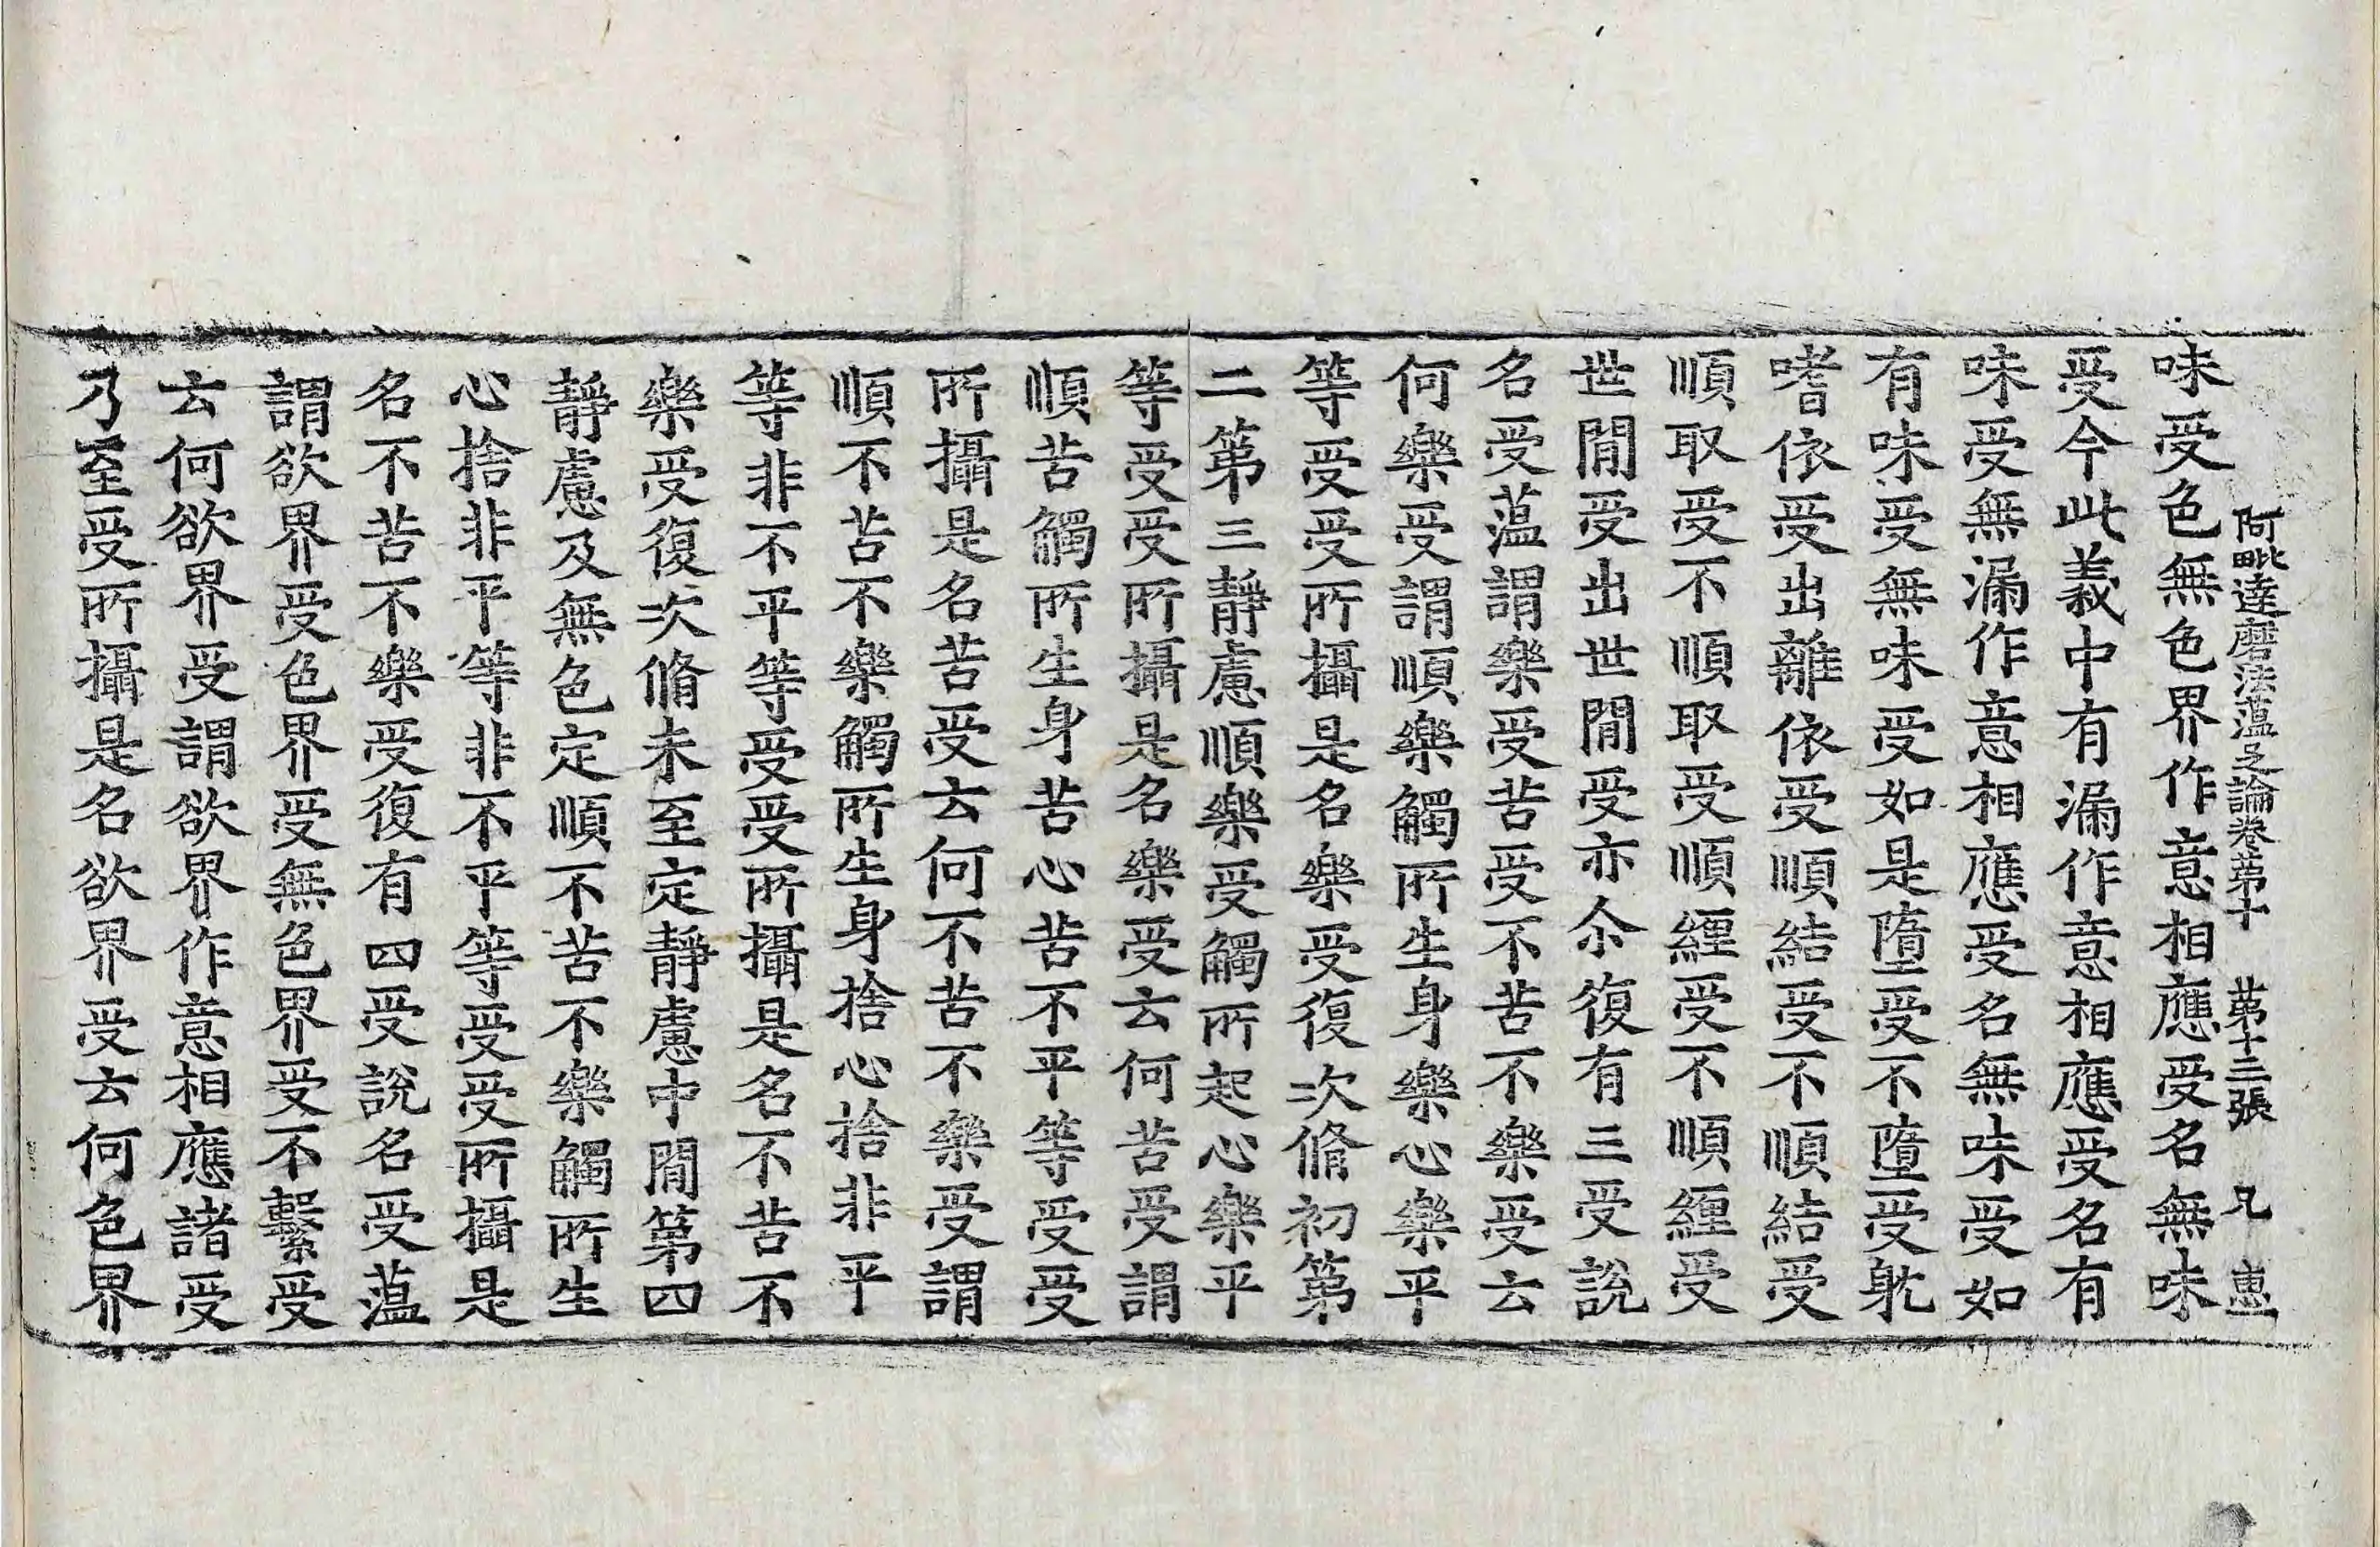 阿毗達磨法蘊足論卷第十 第十三張 兄
味受色無色界作意相應受名無味
受今此義中有漏作意相應受名有
味受無漏作意相應受名無味受如
有味受無味受如是墮受不墮受躭
嗜依受出離依受順結受不順結受
順取受不順取受順纒受不順纒受
世間受出世間受亦尒復有三受說
名受蘊謂樂受苦受不苦不樂受云
何樂受謂順樂觸所生身樂心樂平
等受受所攝是名樂受復次脩初第
二第三靜慮順樂受觸所起心樂平
等受受所攝是名樂受云何苦受謂
順苦觸所生身苦心苦不平等受受
所攝是名苦受云何不苦不樂受謂
順不苦不樂觸所生身捨心捨非平
等非不平等受受所攝是名不苦不
樂受復次脩未至定靜慮中間第四
靜慮及無色定順不苦不樂觸所生
心捨非平等非不平等受受所攝是
名不苦不樂受復有四受說名受蘊
謂欲界受色界受無色界受不繫受
云何欲界受謂欲界作意相應諸受
乃至受所攝是名欲界受云何色界